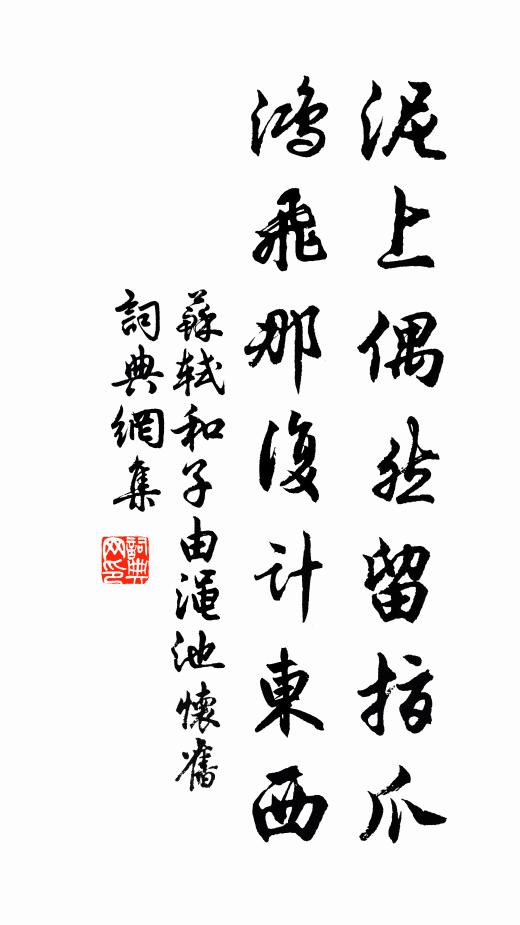 泥上偶然留指爪
鴻飛那復計東西
蘇軾和子由澠池懷舊
詞典網集
詞典網印